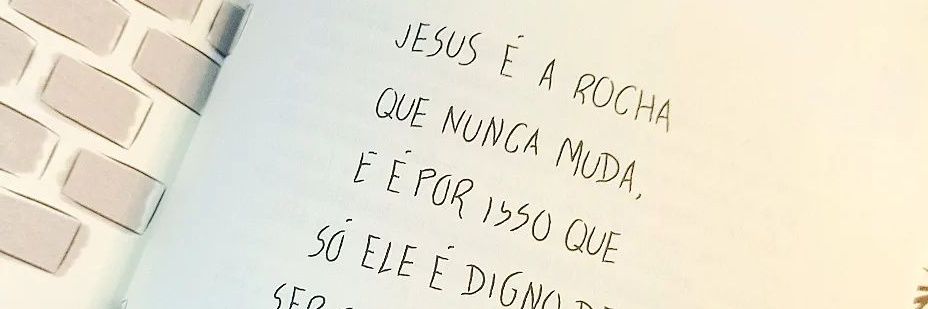 JESUS É A ROCHA
QUE NUNCA MUDA,
E É POR ISSO QUE
SÓ ELE É DIGNO